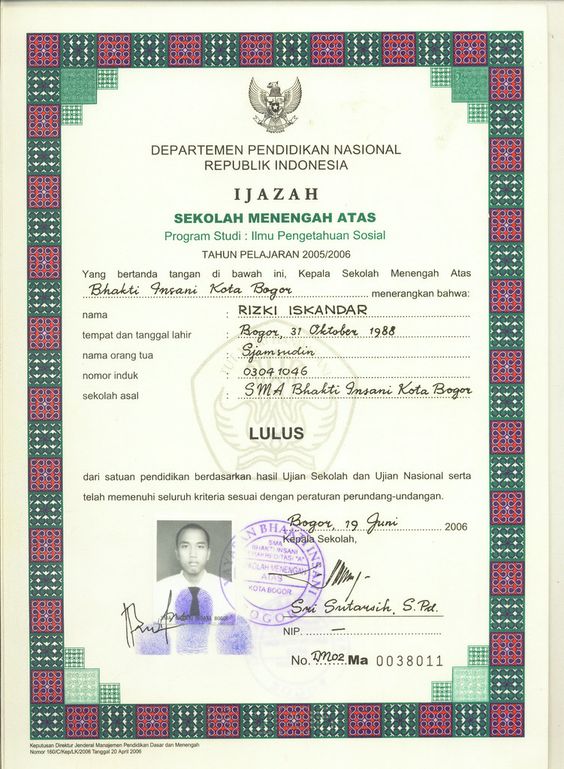 DEPARTEMEN PENDIDIKAN NASIONAL
REPUBLIK INDONESIA
IJAZAH
SEKOLAH MENENGAH ATAS
Program Studi : Ilmu Pengetahuan Sosial
TAHUN PELAJARAN 2005/2006
Yang bertanda tangan di bawah ini, Kepala Sekolah Menengah Atas
Bhakti Insani Kota Bogor menerangkan bahwa:
nama : RIZKI ISKANDAR
tempat dan tanggal lahir : Bogor, 31 Oktober 1988
nama orang tua : Sjamsudin
nomor induk : 03041046
sekolah asal : SMA Bhakti Insani Kota Bogor
LULUS
dari satuan pendidikan berdasarkan hasil Ujian Sekolah dan Ujian Nasional serta
telah memenuhi seluruh kriteria sesuai dengan peraturan perundang-undangan.
Bogor, 19 Juni 2006
Kepala Sekolah,
YAYASAN BHAKTI INSANI
SMA
BHAKTI INSANI
SEKOLAH MENENGAH
ATAS
KOTA BOGOR
BOGOR
Sri Sutarsih, S.Pd.
NIP. —
No. DN02 Ma 0038011
Keputusan Direktur Jenderal Manajemen Pendidikan Dasar dan Menengah
Nomor 160/C/Kep/LK/2006 Tanggal 20 April 2006